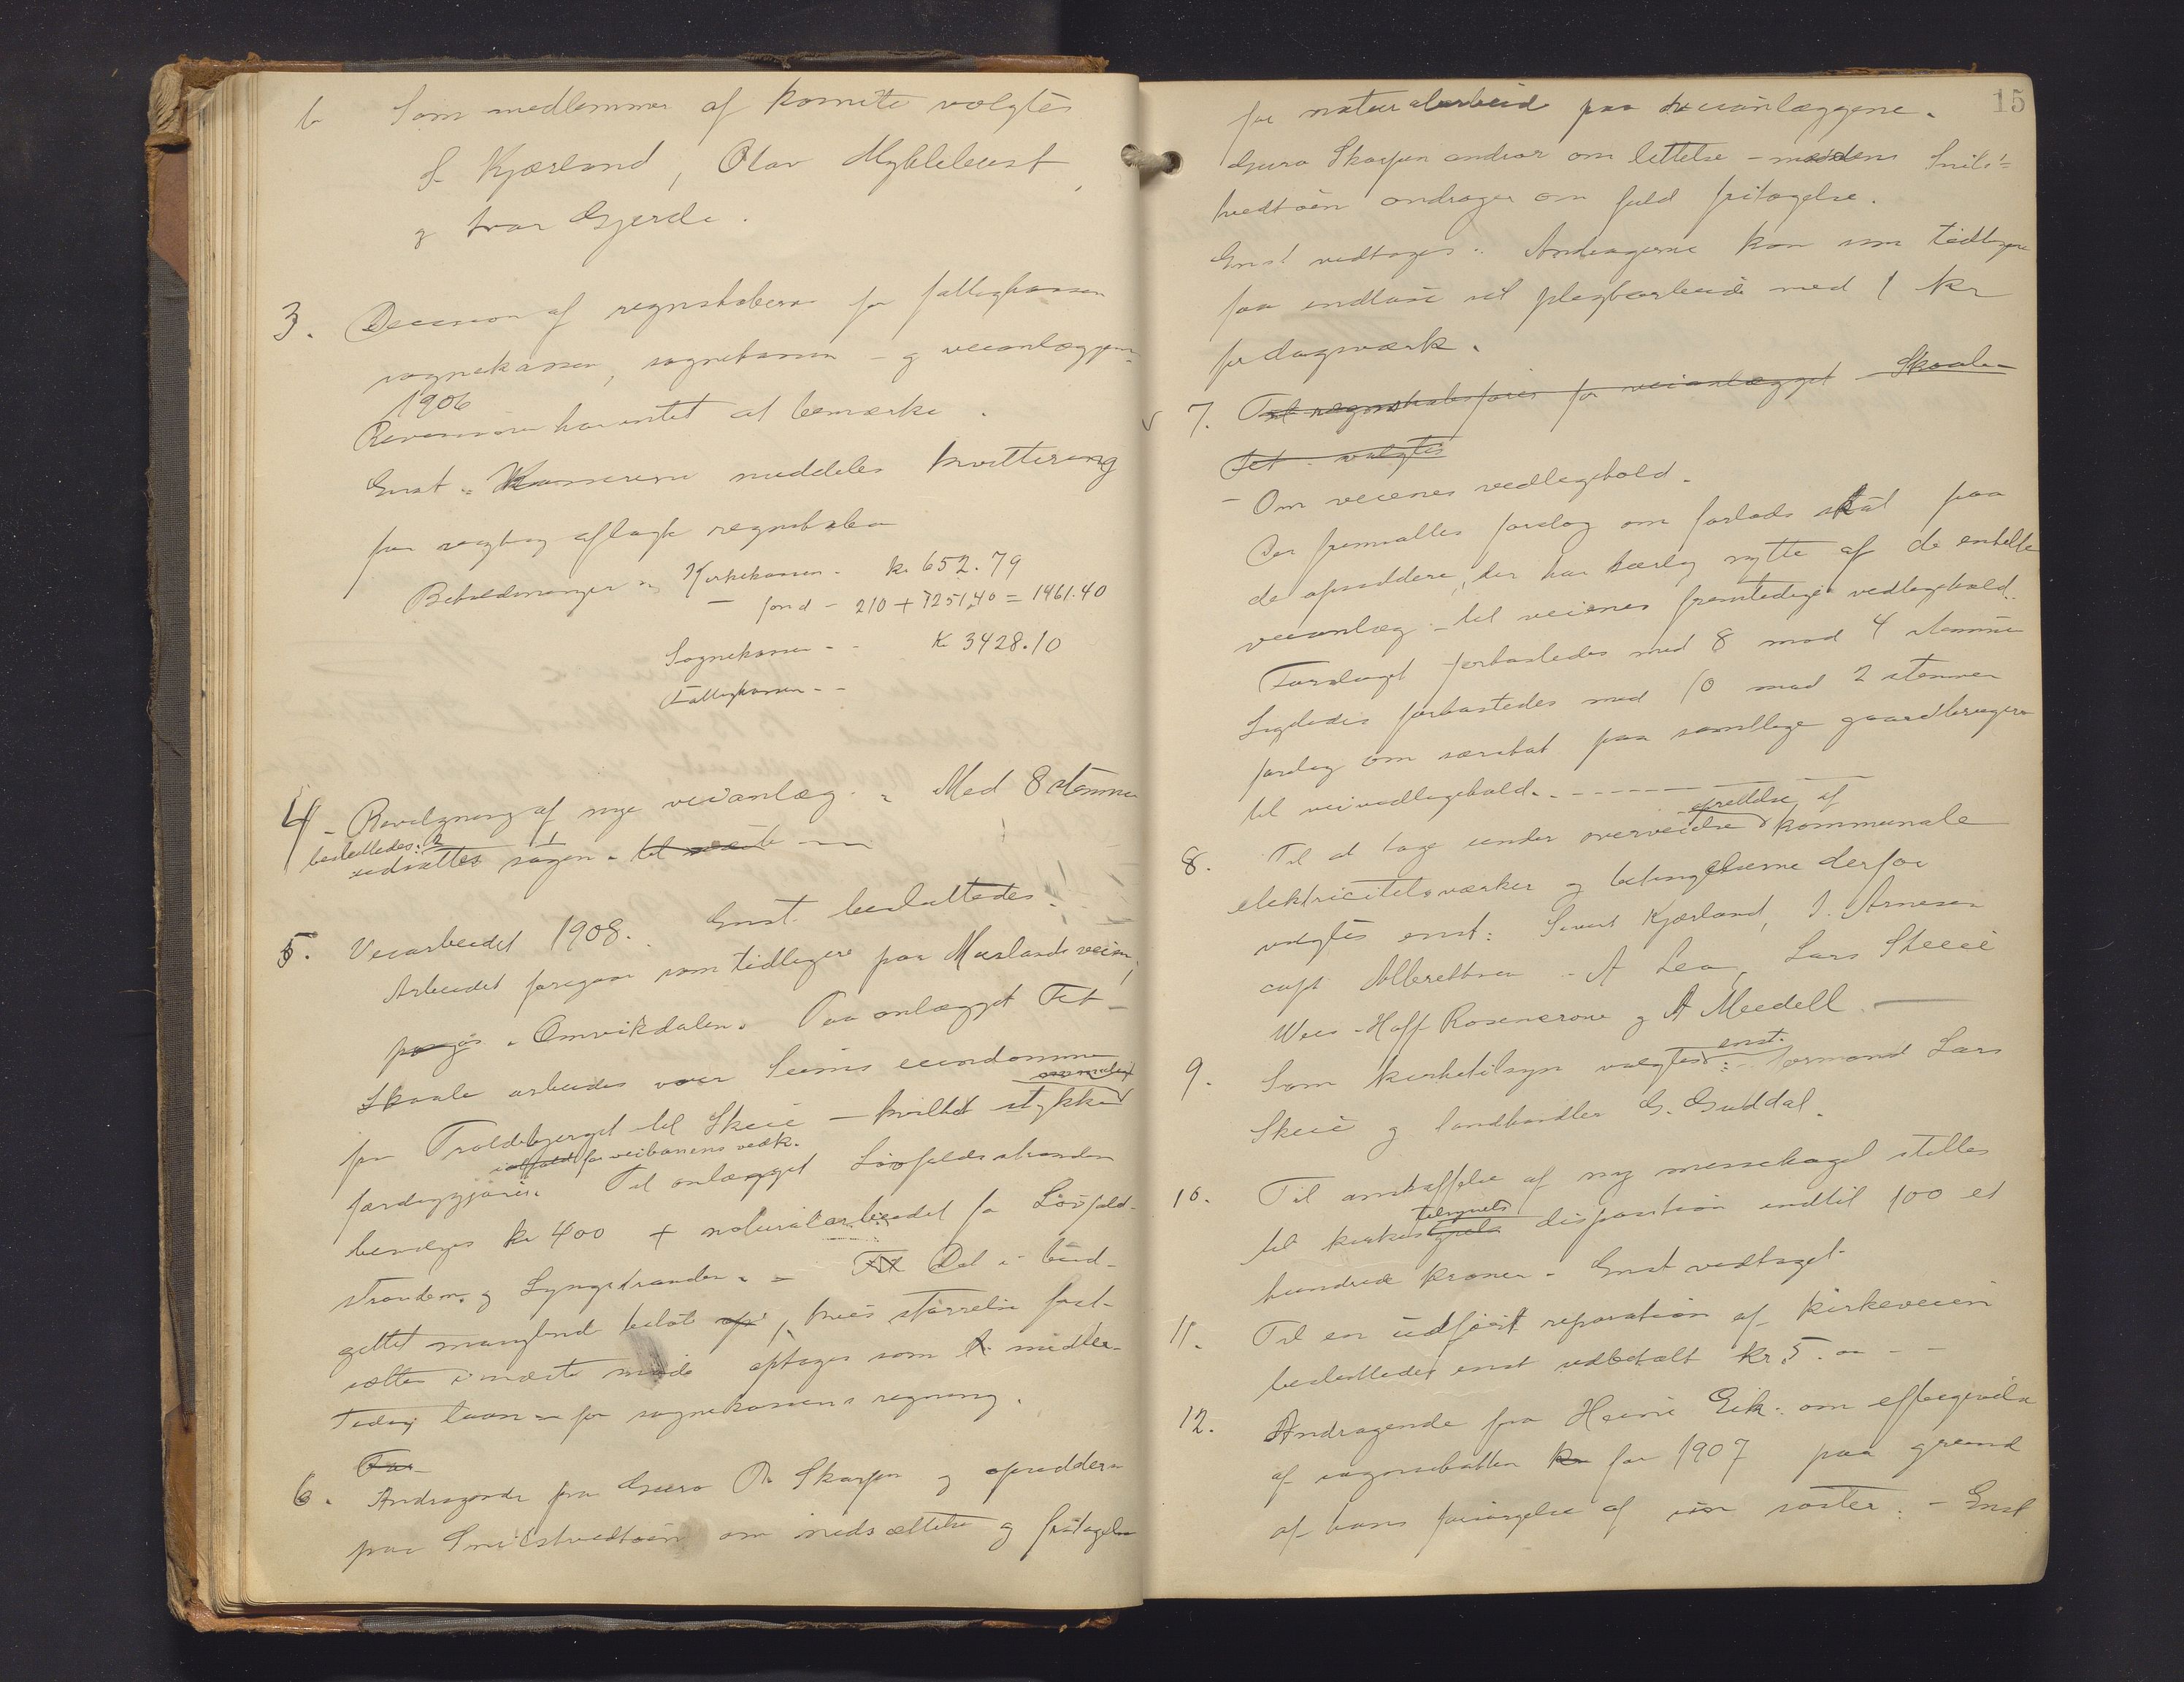 b Som medlemmer af komite valgtes
S. Kjærland, Olav Myklebust,
og Ivar Gjerde.
3. Decision af regnskaberne for fattigkassen
sognekassen, sognekassen - og veianlæggene
1906
Revisionen har intet at bemærke.
Enst. Kassererne meddeles kvittering
for rigtig aflagte regnskaber
Beholdninger: Kirkekassen - kr 652.79
— fond - 210 + 1251,40 = 1461.40
Sognekassen - - K 3428.10
Fattigkassen - -
4 - Bevilgning af nye veianlæg. - Med 8 stemmer
besluttedes at
udsættes sagen - til næste
5. Veiarbeidet 1908. Enst. besluttedes:
Arbeidet foregaar som tidligere paa Mærlandsveien,
i Omvikdalen. Paa anlægget Tet-
Skaale arbeides over Seims eiendomme
fra Troldebjerget til Skeie - hvilket stykke
ialfald for veibanens vedk.
færdiggjøres. Til anlægget Løvfaldsstranden
benyttes kr 400 + naturalarbeidet fra Løvfald-
stranden og Lyngstranden. - Det i bud-
gettet manglende beløb, hvis størrelse fast-
sættes i næste møde optages som midler-
tidig laan - for sognekassens regning.
For
6. Andragende fra Guro D. Skarpen og opsiddere
paa Snilstvedtøen om nedsættelse og fritagelse
15
for naturalarbeid paa veianlæggene.
Guro Skarpen andrar om lettelse - medens Snilst-
vedtøen andrager om fuld fritagelse.
Enst vedtages: Andragerne kan som tidligere
faa indløse sit pligtarbeide med 1 kr
pr dagsværk.
7. Til regnskabsfører for veianlægget Skaale-
Tet valgtes
- Om veienes vedligehold.
Der fremsattes forslag om forlods skat paa
de opsiddere, der har særlig nytte af de enkelte
veianlæg - til veienes fremtidige vedligehold.
Forslaget forkastedes med 8 mod 4 stemmer
Ligeledes forkastedes med 10 mod 2 stemmer
forslag om særskat paa samtlige gaardbrugere
til veivedligehold. - - - - - - -
oprettelse af
8. Til at tage under overveielse kommunale
elektricitetsværker og betingelserne derfor
valgtes enst: Sivert Kjærland, J. Arnesen
capt Albrethsen - A Lea, Lars Skeie
Weis-Hoff Rosencrone og A Meedell.
enst.
9. Som kirketilsyn valgtes: formand Lars
Skeie og landhandler G. Guddal.
10. Til anskaffelse af ny messehagel stilles
tilsynets
til kirkens disposition indtil 100 et
hundrede kroner - Enst vedtaget.
11. Til en udført reparation af kirkeveien
besluttedes enst udbetalt kr. 5. - -
12. Andragende fra Heine Eik: om eftergivelse
af sogneskatten kr for 1907 paa grund
af hans forsørgelse af sin søster: - Enst